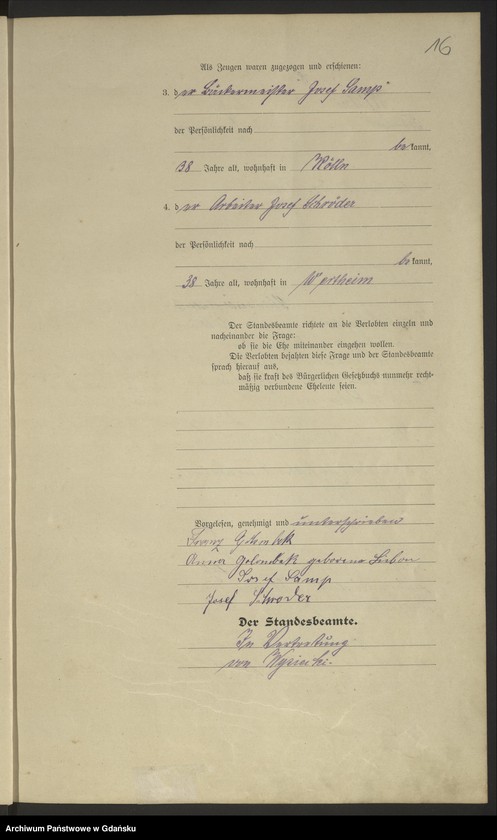 16
Als Zeugen waren zugezogen und erschienen:
3. der Bäckermeister Josef Samp
der Persönlichkeit nach
bekannt,
38 Jahre alt, wohnhaft in Mölln
4. der Arbeiter Josef Schröder
der Persönlichkeit nach
bekannt,
38 Jahre alt, wohnhaft in Wertheim
Der Standesbeamte richtete an die Verlobten einzeln und
nacheinander die Frage:
ob sie die Ehe miteinander eingehen wollen.
Die Verlobten bejahten diese Frage und der Standesbeamte
sprach hierauf aus,
daß sie kraft des Bürgerlichen Gesetzbuchs nunmehr recht-
mäßig verbundene Eheleute seien.
Vorgelesen, genehmigt und unterschrieben
Franz
Anna geborene
Josef Samp
Josef Schroder
Der Standesbeamte.
In Vertretung
von
Archiwum Państwowe w Gdańsku